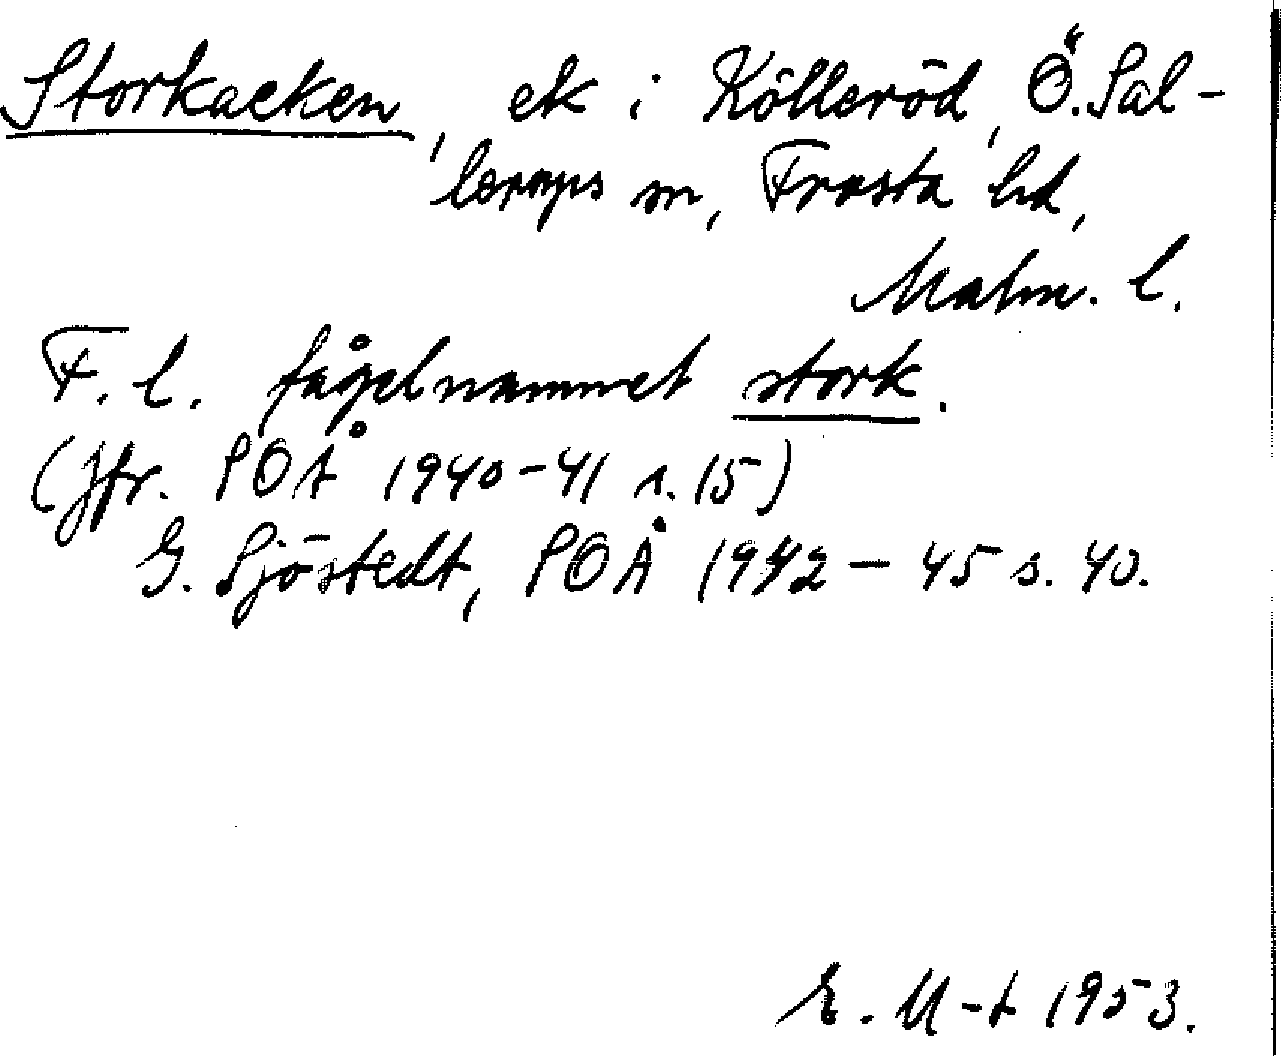 Storkaeken, ek i Kölleröd, Ö. Sal-
lerups sn, Frosta hd,
Malm. l.
F. l. fågelnamnet stork.
(Jfr. SOÅ 1940-41 s. 15)
G. Sjöstedt, SOÅ 1942 – 45 s. 40.
E. M-t 1953.